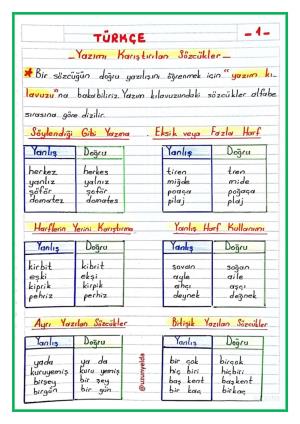 TÜRKÇE
-1-
Yazımı Karıştırılan Sözcükler
* Bir sözcüğün doğru yazılışını öğrenmek için "yazım kı-
lavuzu"na bakabiliriz. Yazım kılavuzundaki sözcükler alfabe
sırasına göre dizilir.
Söylendiği Gibi Yazma
Yanlış Doğru
herkez herkes
yanlız yalnız
şöför şoför
domatez domates
Eksik veya Fazla Harf
Yanlış Doğru
tiren tren
miğde mide
poaça poğaça
pilaj plaj
Harflerin Yerini Karıştırma
Yanlış Doğru
kirbit kibrit
eşki ekşi
kiprik kirpik
pehriz perhiz
Yanlış Harf Kullanımı
Yanlış Doğru
sovan soğan
ayle aile
ahçı aşçı
deynek değnek
Ayrı Yazılan Sözcükler
Yanlış Doğru
yada ya da
kuruyemiş kuru yemiş
birşey bir şey
birgün bir gün
Bitişik Yazılan Sözcükler
Yanlış Doğru
bir çok birçok
hiç biri hiçbiri
baş kent başkent
bir kaç birkaç
@uzunyelda